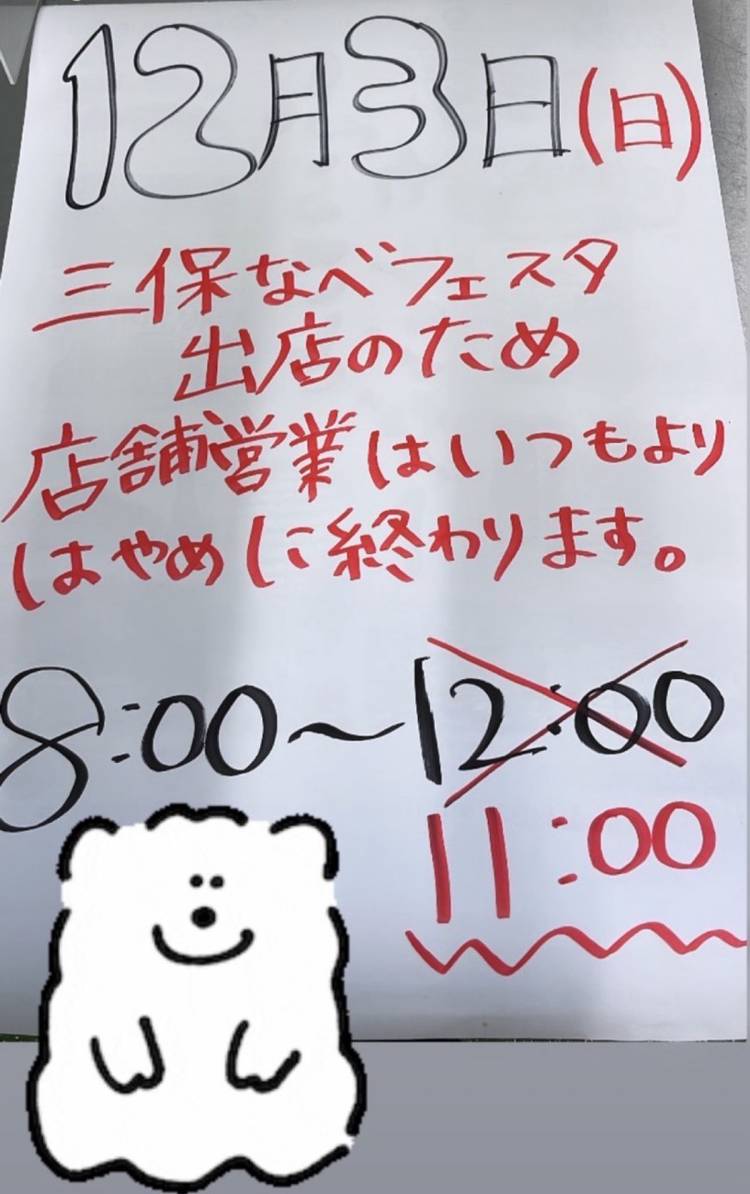 12月3日(日)
三保なべフェスタ
出店のため
店舗営業はいつもより
はやめに終わります。
8:00～12:00
11:00